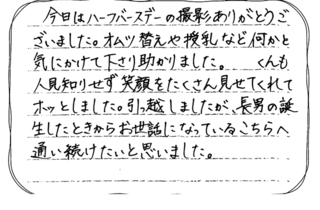 今日はハーフバースデーの撮影ありがとうご
ざいました。オムツ替えや授乳など何かと
気にかけて下さり助かりました。　くんも
人見知りせず笑顔をたくさん見せてくれて
ホッとしました。引っ越しましたが、長男の誕
生したときからお世話になっているこちらへ
通い続けたいと思いました。